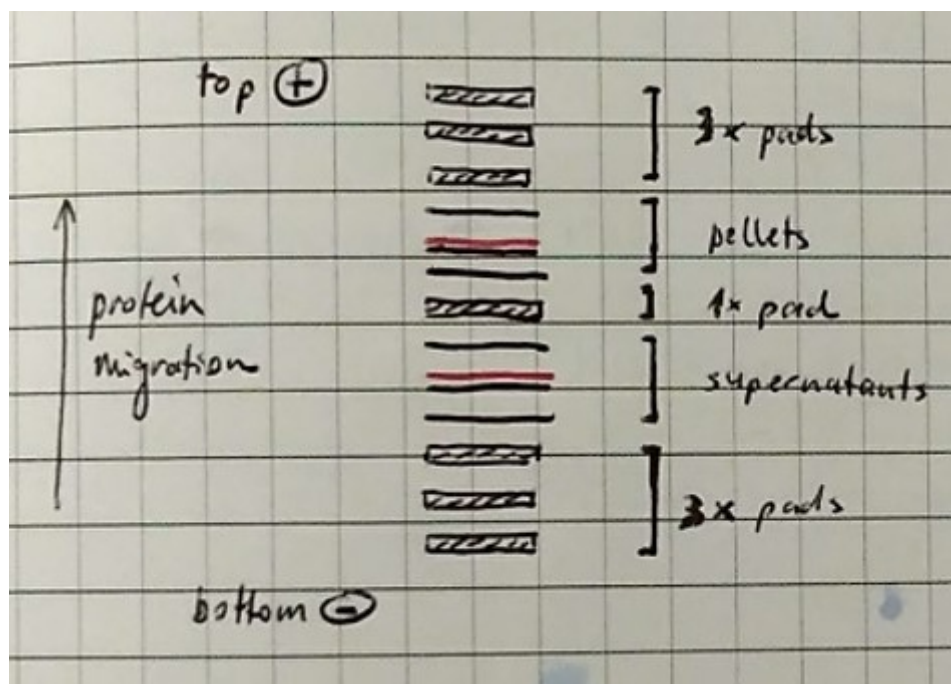 top +
3x pads
pellets
protein
1x pad
migration
supernatants
3x pads
bottom -